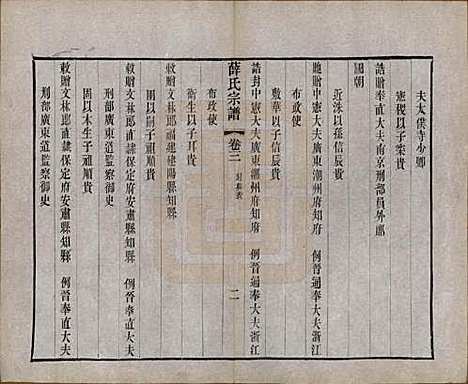 夫太僕寺少卿
憲稷以子棨貴
誥贈奉直大夫南京刑部員外郎
國朝
近洙以孫信辰貴
馳贈中憲大夫廣東潮州府知府　例晉通奉大夫浙江
布政使
敷華以子信辰貴
誥封中憲大夫廣東潮州府知府　例晉通奉大夫浙江
布政使
薛氏宗譜
卷三
封典表
二
衛生以子耳貴
敕贈文林郎福建建陽縣知縣
国以嗣子祖順貴
敕贈文林郎直隸保定府安肅縣知縣　例晉奉直大夫
刑部廣東道監察御史
固以本生子祖順貴
敕贈文林郎直隸保定府安肅縣知縣　例晉奉直大夫
刑部廣東道監察御史